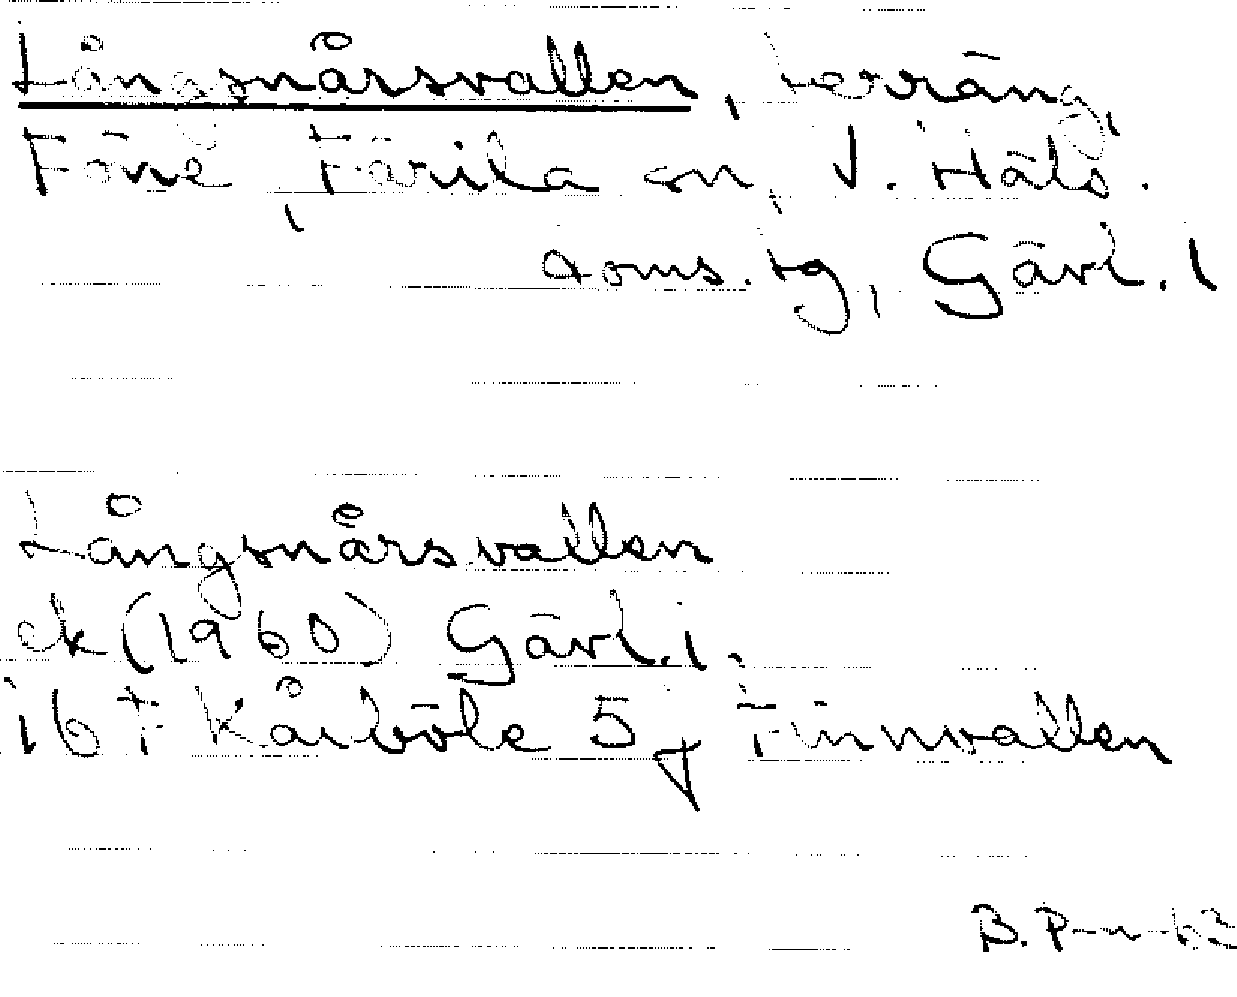 Långsnårsvallen, terräng,
Föne, Färila sn, V. Häls.
doms. tg, Gävl. l
Långsnårsvallen
ek (1960) Gävl. l.
16 F Kårböle 5 f Finnvallen
B. P-n-62